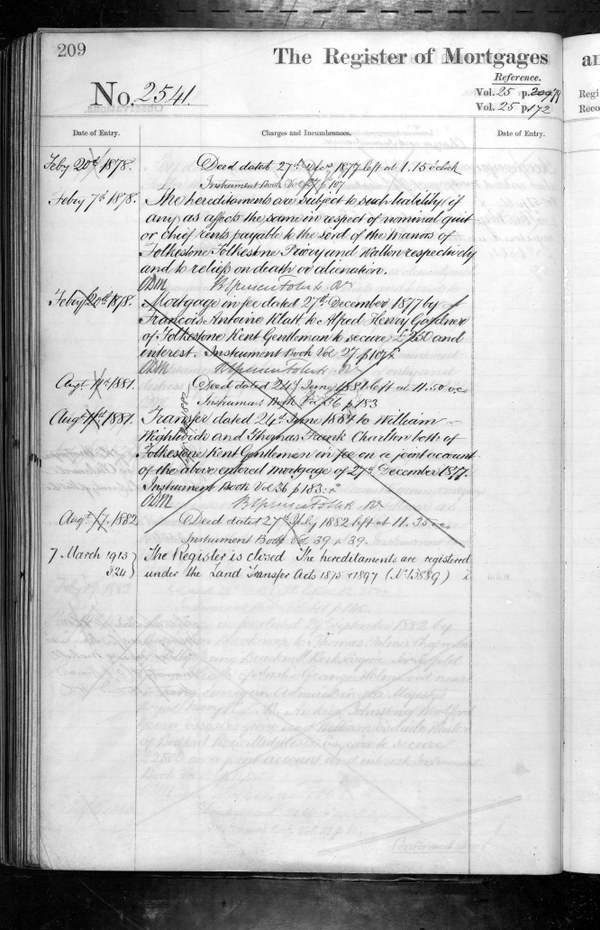 209
The Register of Mortgages
Reference.
No. 2541
Vol. 25 p. 209
Vol. 25 p. 172
Date of Entry.
Charges and Incumbrances.
Date of Entry.
Feby 20th 1878.
Deed dated 27th Decr 1877 left at 1.15 o'clock
Instrument Book Vol 27 p 107
Feby 7th 1878.
The hereditaments are subject to such liability if
any as affects the same in respect of nominal quit
or Chief Rents payable to the Lord of the Manors of
Folkestone Folkestone Priory and Walton respectively
and to reliefs on death or alienation.
Feby 20th 1878.
Mortgage in fee dated 27th December 1877 by
Francois Antoine Klatt to Alfred Henry Gardner
of Folkestone Kent Gentleman to secure £750 and
interest. Instrument Book Vol 27 p 107
Augt 11th 1881.
Deed dated 24th June 1881 left at 11.50
Instrument Book Vol 36 p 183
Augt 11th 1881.
Transfer dated 24th June 1881 to William
Wightwick and Thomas Frank Charlton both of
Folkestone Kent Gentlemen in fee on a joint account
of the above entered mortgage of 27th December 1877.
Instrument Book Vol 36 p 183
Augt 17. 1882
Deed dated 27th July 1882 left at 11.35
Instrument Book Vol 39 39.
7 March 1913
The Register is closed The hereditaments are registered
324
under the Land Transfer Acts 1875 & 1897 (No 13889)
an
Regi
Reco